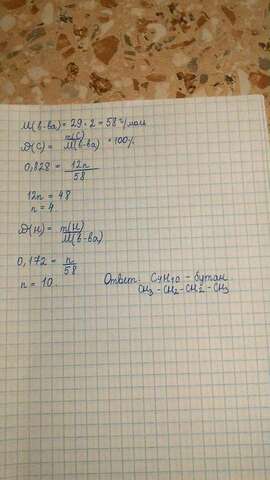 M(в-ва) = 29 · 2 = 58 г/моль
ω(C) = m(C)/M(в-ва) · 100%
0,828 = 12n/58
12n = 48
n = 4.
ω(H) = m(H)/M(в-ва)
0,172 = n/58
n = 10.
Ответ: C4H10 - бутан
CH3 - CH2 - CH2 - CH3